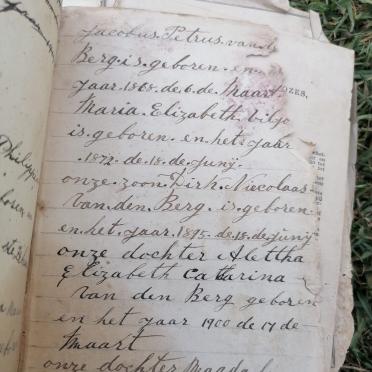 Jacobus Petrus van de
Berg is geboren en
Jaar 1868 de 6 de Maart
Maria Elizabeth
is geboren en het jaar
1872 de 18 de Junij
onze zoon Dirk Nicolaas
van den Berg is geboren
en het jaar 1895 de 18 de Junij
onze dochter Alettha
Elizabeth Catharina
van den Berg geboren
en het jaar 1900 de 17 de
Maart
onze dochter